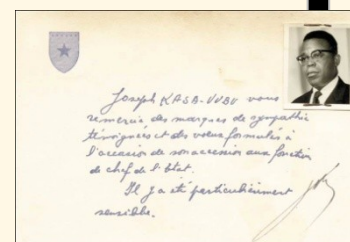 Joseph KASA-VUBU vous
remercie des marques de sympathie
témoignées et des vœux formulés à
l'occasion de son accession aux fonction
de chef de l'état.
Il y a été particulièrement
sensible.